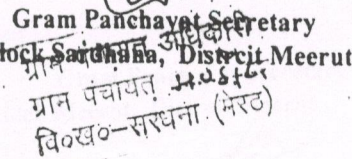 Gram Panchayat Secretary
Block Sardhana, Distrcit Meerut
ग्राम पंचायत अधिकारी
ग्राम पंचायत
वि०ख०-सरधना (मेरठ)